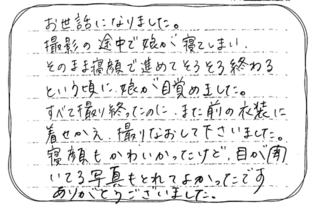 お世話になりました。
撮影の途中で娘が寝てしまい、
そのまま寝顔で進めてそろそろ終わる
という頃に、娘が目覚めました。
すべて撮り終ったのに、また前の衣装に
着せかえ、撮りなおして下さいました。
寝顔もかわいかったけど、目が開
いてる写真もとれてよかったです
ありがとうございました。